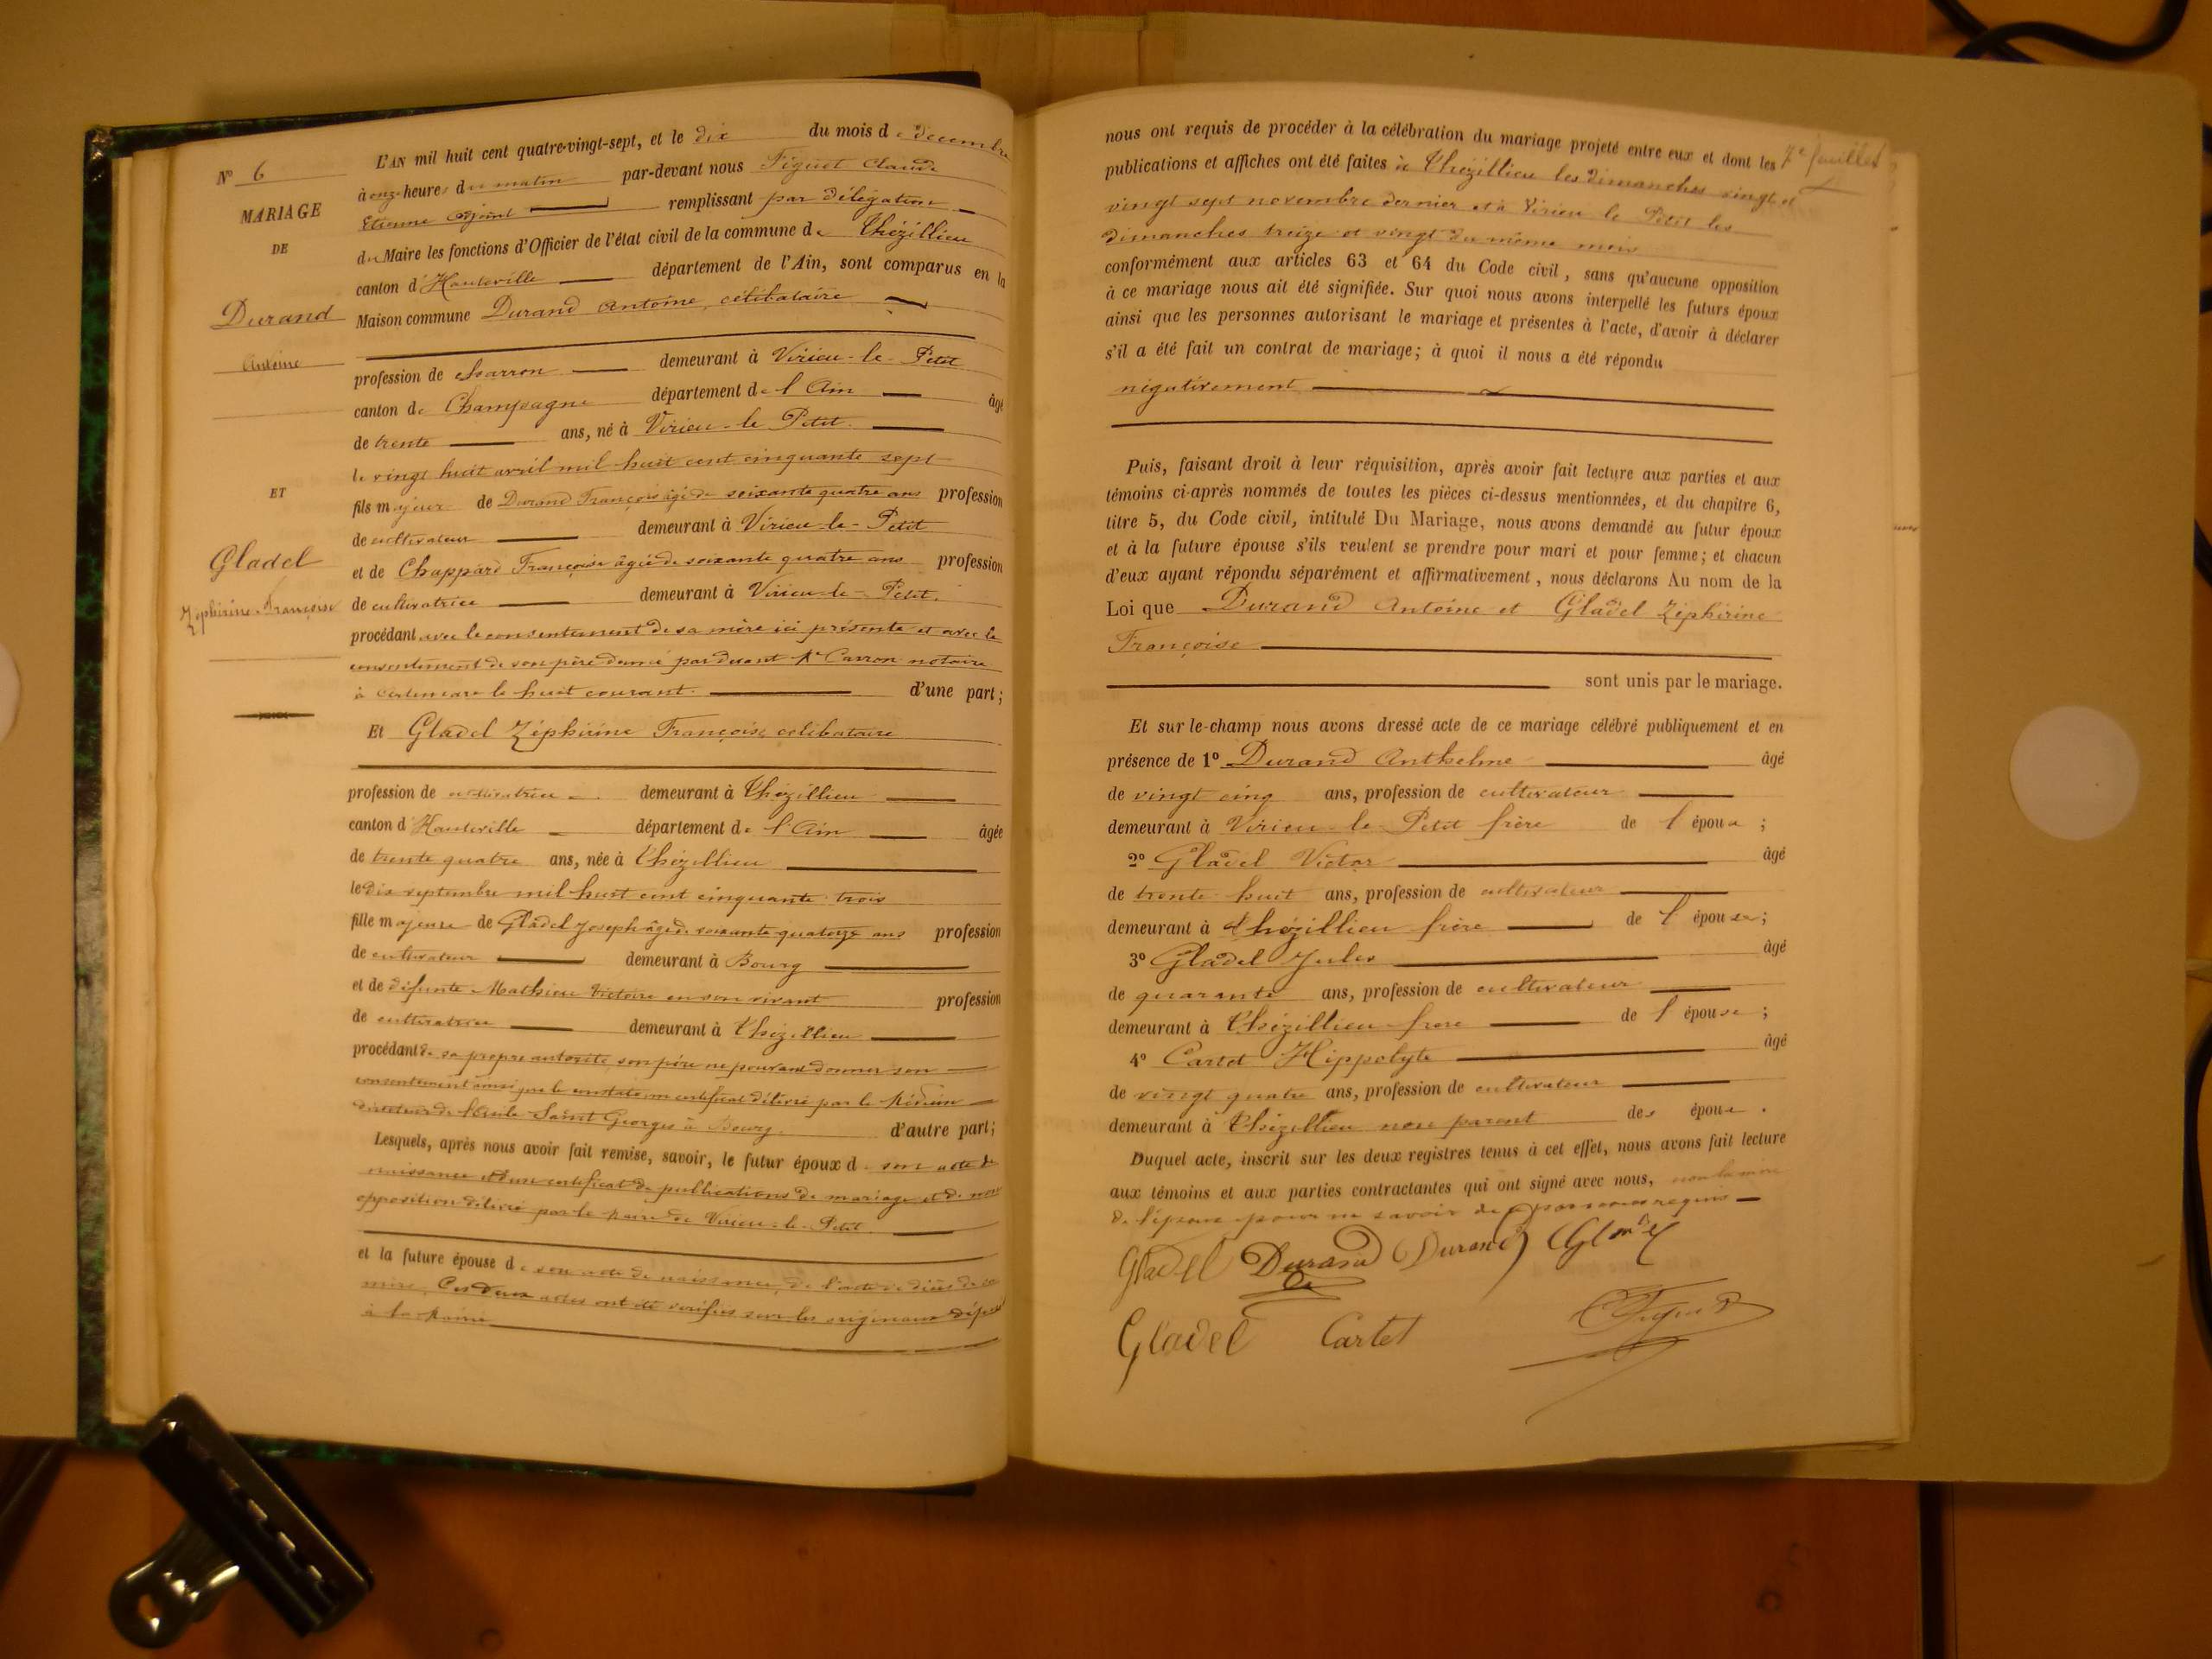 N° 6
MARIAGE
DE
Durand
Antoine
ET
Gladel
Zéphirine Françoise
L'AN mil huit cent quatre-vingt-sept, et le dix du mois de décembre
à onze heures du matin par-devant nous Figuet Claude
Etienne adjoint remplissant par délégation
du Maire les fonctions d'Officier de l'état civil de la commune de Thézillieu
canton d'Hauteville département de l'Ain, sont comparus en la
Maison commune Durand Antoine, célibataire
profession de charron demeurant à Virieu-le-Petit
canton de Champagne département de l'Ain âgé
de trente ans, né à Virieu-le-Petit
le vingt huit avril mil huit cent cinquante sept
fils majeur de Durand François âgé de soixante quatre ans profession
de cultivateur demeurant à Virieu-le-Petit
et de Chappard Françoise âgée de soixante quatre ans profession
de cultivatrice demeurant à Virieu-le-Petit.
procédant avec le consentement de sa mère ici présente et avec le
consentement de son père donné par devant Me Carron notaire
à le huit courant. d'une part;
Et Gladel Zéphirine Françoise, célibataire
profession de cultivatrice demeurant à Thézillieu
canton d'Hauteville département de l'Ain âgée
de trente quatre ans, née à Thézillieu
le dix septembre mil huit cent cinquante trois
fille majeure de Gladel Joseph âgé de soixante quatorze ans profession
de cultivateur demeurant à Bourg
et de défunte Mathieu Victoire en son vivant profession
de cultivatrice demeurant à Thézillieu
procédant de sa propre autorité, son père ne pouvant donner son
consentement ainsi que le constate un certificat délivré par le Médecin
directeur de l'Asile Saint Georges à Bourg. d'autre part;
Lesquels, après nous avoir fait remise, savoir, le futur époux de son acte de
naissance et d'un certificat de publications de mariage et de non
opposition délivré par le Maire de Virieu-le-Petit
et la future épouse de son acte de naissance, de l'acte de décès de sa
mère. Ces deux actes ont été vérifiés sur les originaux déposés
à la Mairie
7e feuillet
nous ont requis de procéder à la célébration du mariage projeté entre eux et dont les
publications et affiches ont été faites à Thézillieu les dimanches vingt et
vingt sept novembre dernier et à Virieu le Petit les
dimanches treize et vingt du même mois
conformément aux articles 63 et 64 du Code civil, sans qu'aucune opposition
à ce mariage nous ait été signifiée. Sur quoi nous avons interpellé les futurs époux
ainsi que les personnes autorisant le mariage et présentes à l'acte, d'avoir à déclarer
s'il a été fait un contrat de mariage; à quoi il nous a été répondu
négativement
Puis, faisant droit à leur réquisition, après avoir fait lecture aux parties et aux
témoins ci-après nommés de toutes les pièces ci-dessus mentionnées, et du chapitre 6,
titre 5, du Code civil, intitulé Du Mariage, nous avons demandé au futur époux
et à la future épouse s'ils veulent se prendre pour mari et pour femme; et chacun
d'eux ayant répondu séparément et affirmativement, nous déclarons Au nom de la
Loi que Durand Antoine et Gladel Zéphirine
Françoise
sont unis par le mariage.
Et sur-le-champ nous avons dressé acte de ce mariage célébré publiquement et en
présence de 1° Durand Anthelme âgé
de vingt cinq ans, profession de cultivateur
demeurant à Virieu-le-Petit frère de l'époux;
2° Gladel Victor âgé
de trente-huit ans, profession de cultivateur
demeurant à Thézillieu frère de l'épouse;
3° Gladel Jules âgé
de quarante ans, profession de cultivateur
demeurant à Thézillieu frère de l'épouse;
4° Cartet Hippolyte âgé
de vingt quatre ans, profession de cultivateur
demeurant à Thézillieu non parent des époux.
Duquel acte, inscrit sur les deux registres tenus à cet effet, nous avons fait lecture
aux témoins et aux parties contractantes qui ont signé avec nous, non la mère
de l'époux pour ne savoir de ce requis
Gladel Durand Durand
Gladel Cartet C Figuet